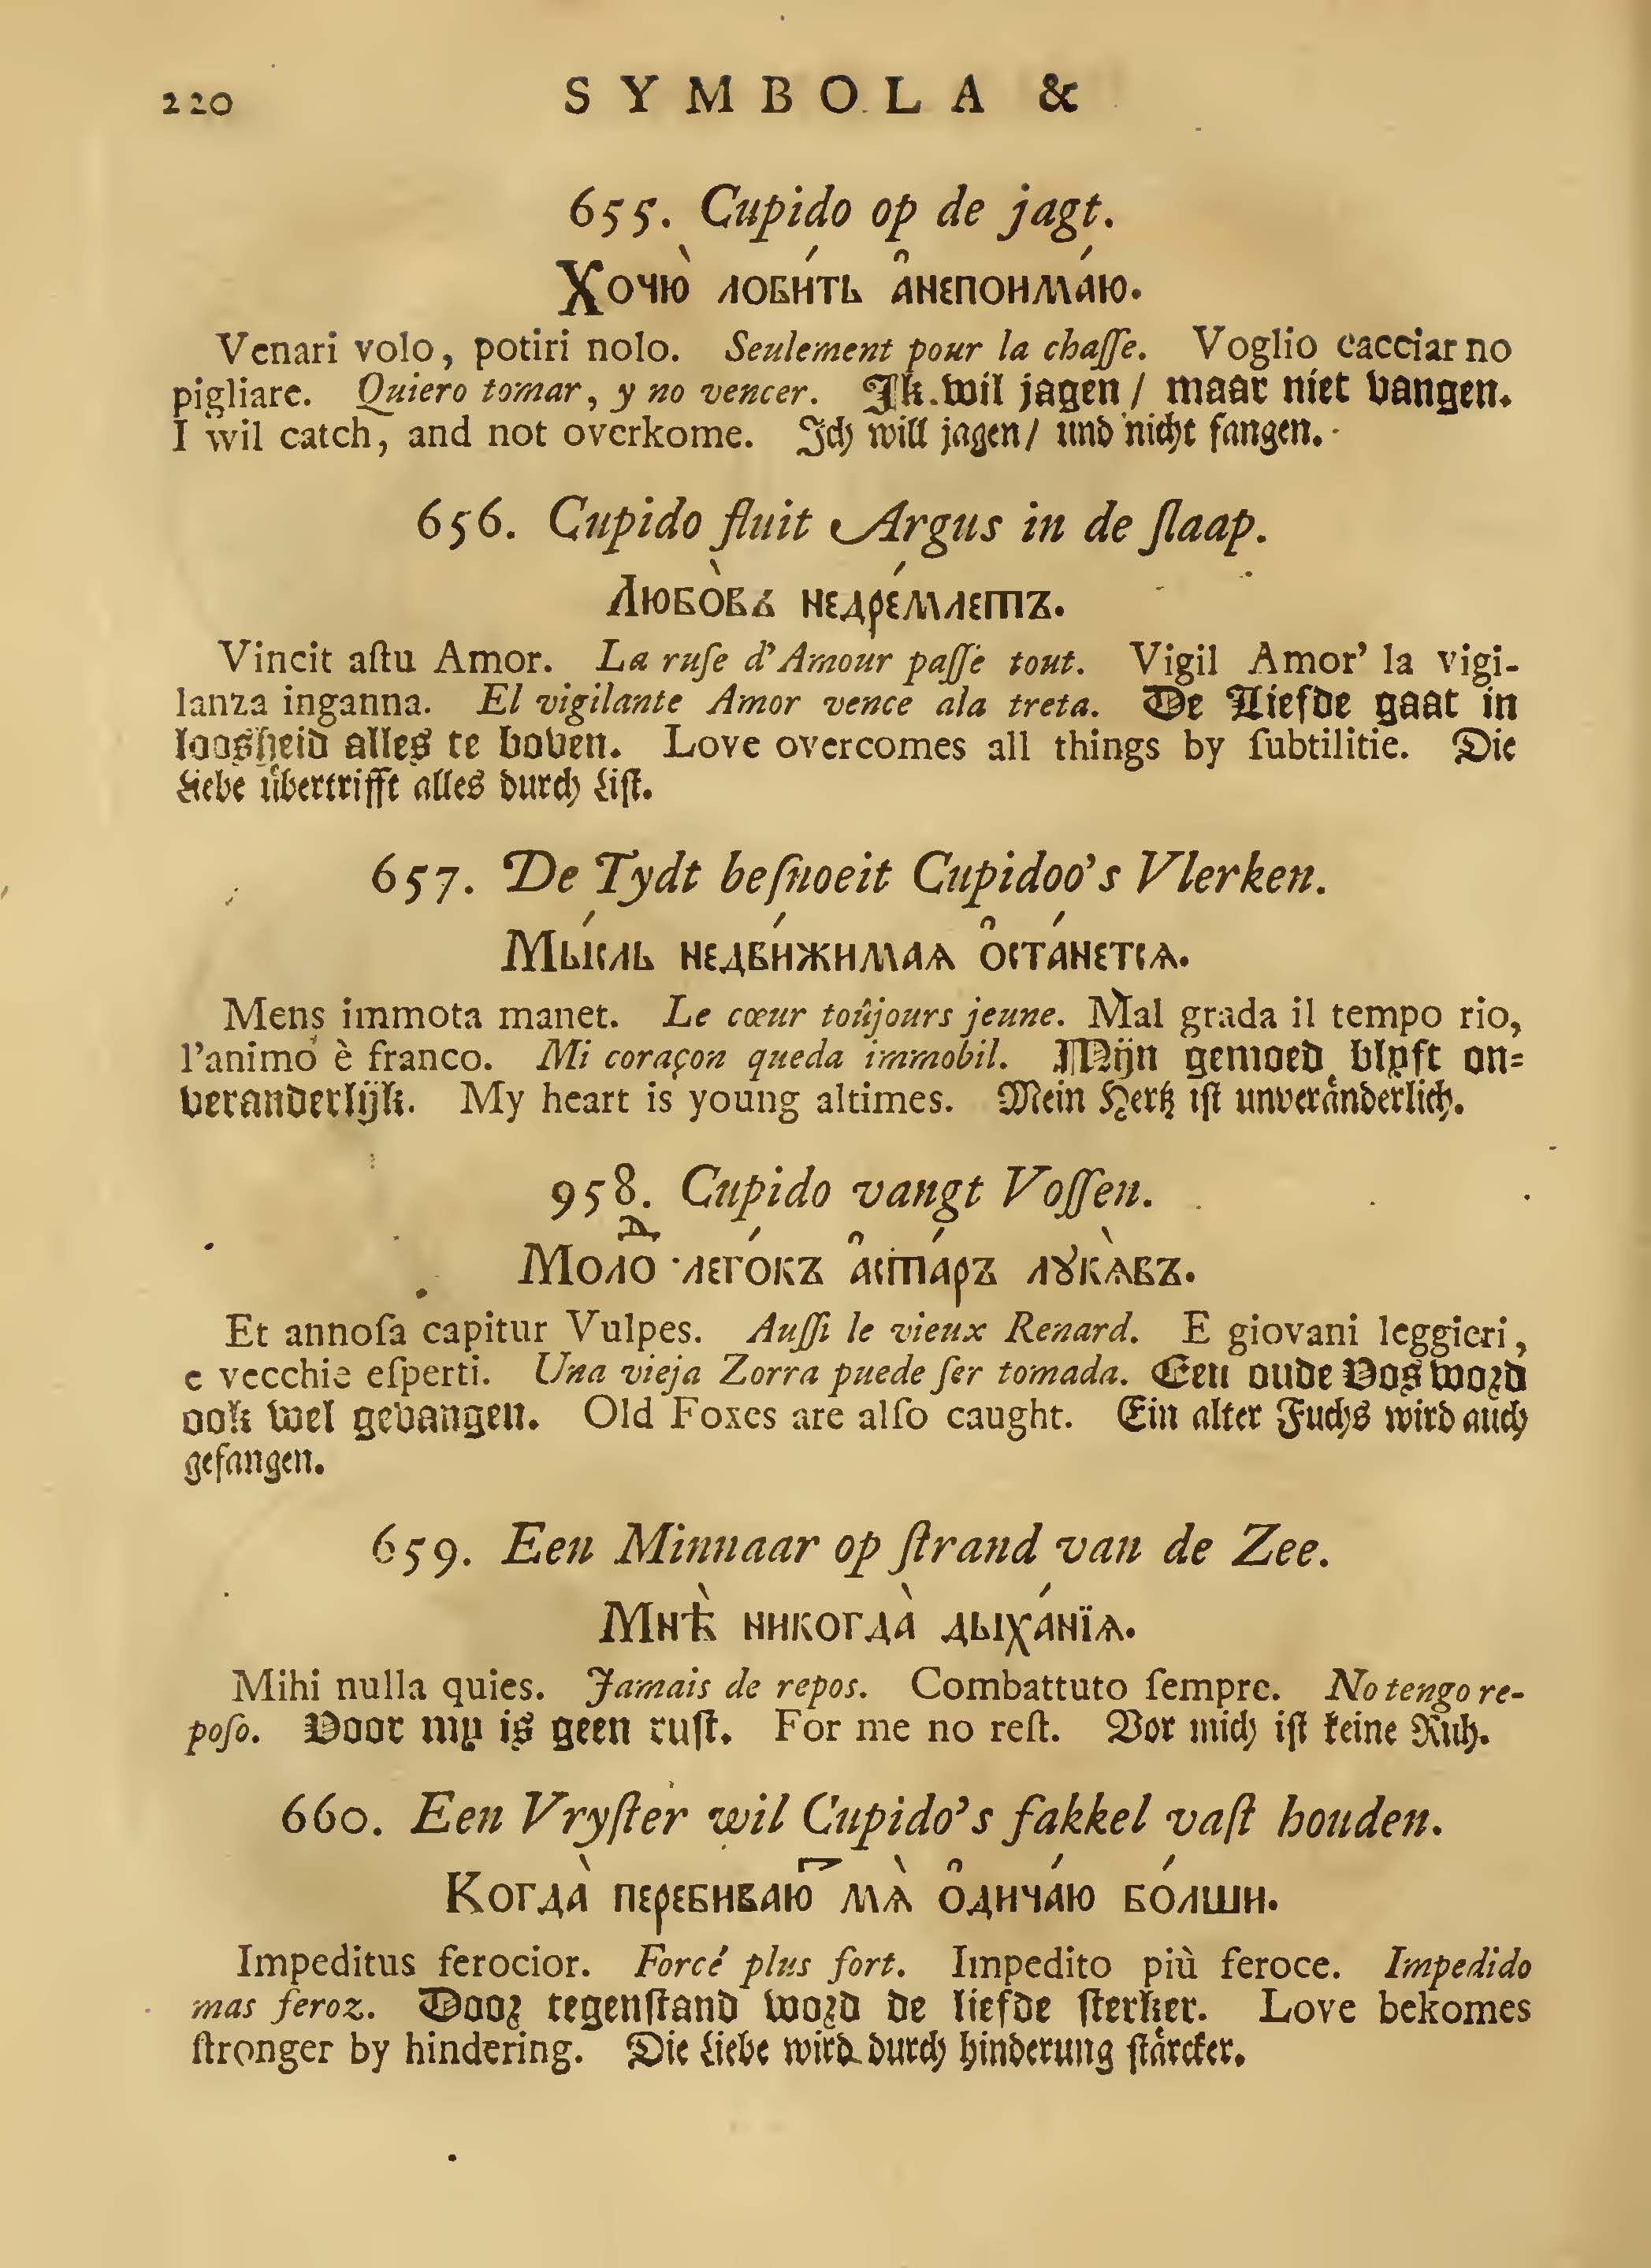 220 SYMBOLA &
655. Cupido op de jagt.
Хочю̀ ловⸯи́ть а҆непонма́ю.
Venari volo, potiri nolo. Seulement pour la chaſſe. Voglio cacciar no
pigliare. Quiero tomar, y no vencer. Ik wil jagen / maar niet vangen.
I wil catch, and not overkome. Ich will jagen / und nicht fangen.
656. Cupido fluit Argus in de ſlaap.
Любо̀вь недре́млетъ.
Vincit aſtu Amor. La ruſe d'Amour paſſe tout. Vigil Amor' la vigi-
lanza inganna. El vigilante Amor vence ala treta. De Liefde gaat in
loosheid alles te boven. Love overcomes all things by ſubtilitie. Die
Liebe uͤbertrifft alles durch Liſt.
657. De Tydt beſnoeit Cupidoo's Vlerken.
Мы́сль недви́жимаѧ ѻ҆ста́нетсѧ.
Mens immota manet. Le cœur toûjours jeune. Mal grada il tempo rio,
l'animo è franco. Mi coraçon queda immobil. Mijn gemoed blyft on-
veranderlijk. My heart is young altimes. Mein Hertz iſt unveraͤnderlich.
958. Cupido vangt Voſſen.
Молоⷣ лего́къ а҆ста́ръ лꙋка̀въ.
Et annoſa capitur Vulpes. Auſſi le vieux Renard. E giovani leggieri,
e vecchie eſperti. Una vieja Zorra puede ſer tomada. Een oude Vos word
ook wel gevangen. Old Foxes are alſo caught. Ein alter Fuchs wird auch
gefangen.
659. Een Minnaar op ſtrand van de Zee.
Мнѣ̀ никогда̀ дыха́нїѧ.
Mihi nulla quies. Jamais de repos. Combattuto ſempre. No tengo re-
poſo. Voor my is geen ruſt. For me no reſt. Vor mich iſt keine Ruh.
660. Een Vryſter wil Cupido's fakkel vaſt houden.
Когда̀ перебиваюⷮ мѧ̀ ѻ҆дича́ю бо́лши.
Impeditus ferocior. Forcé plus fort. Impedito più feroce. Impedido
mas feroz. Door tegenſtand word de liefde ſterker. Love bekomes
ſtronger by hindering. Die Liebe wird durch hinderung ſtaͤrcker.